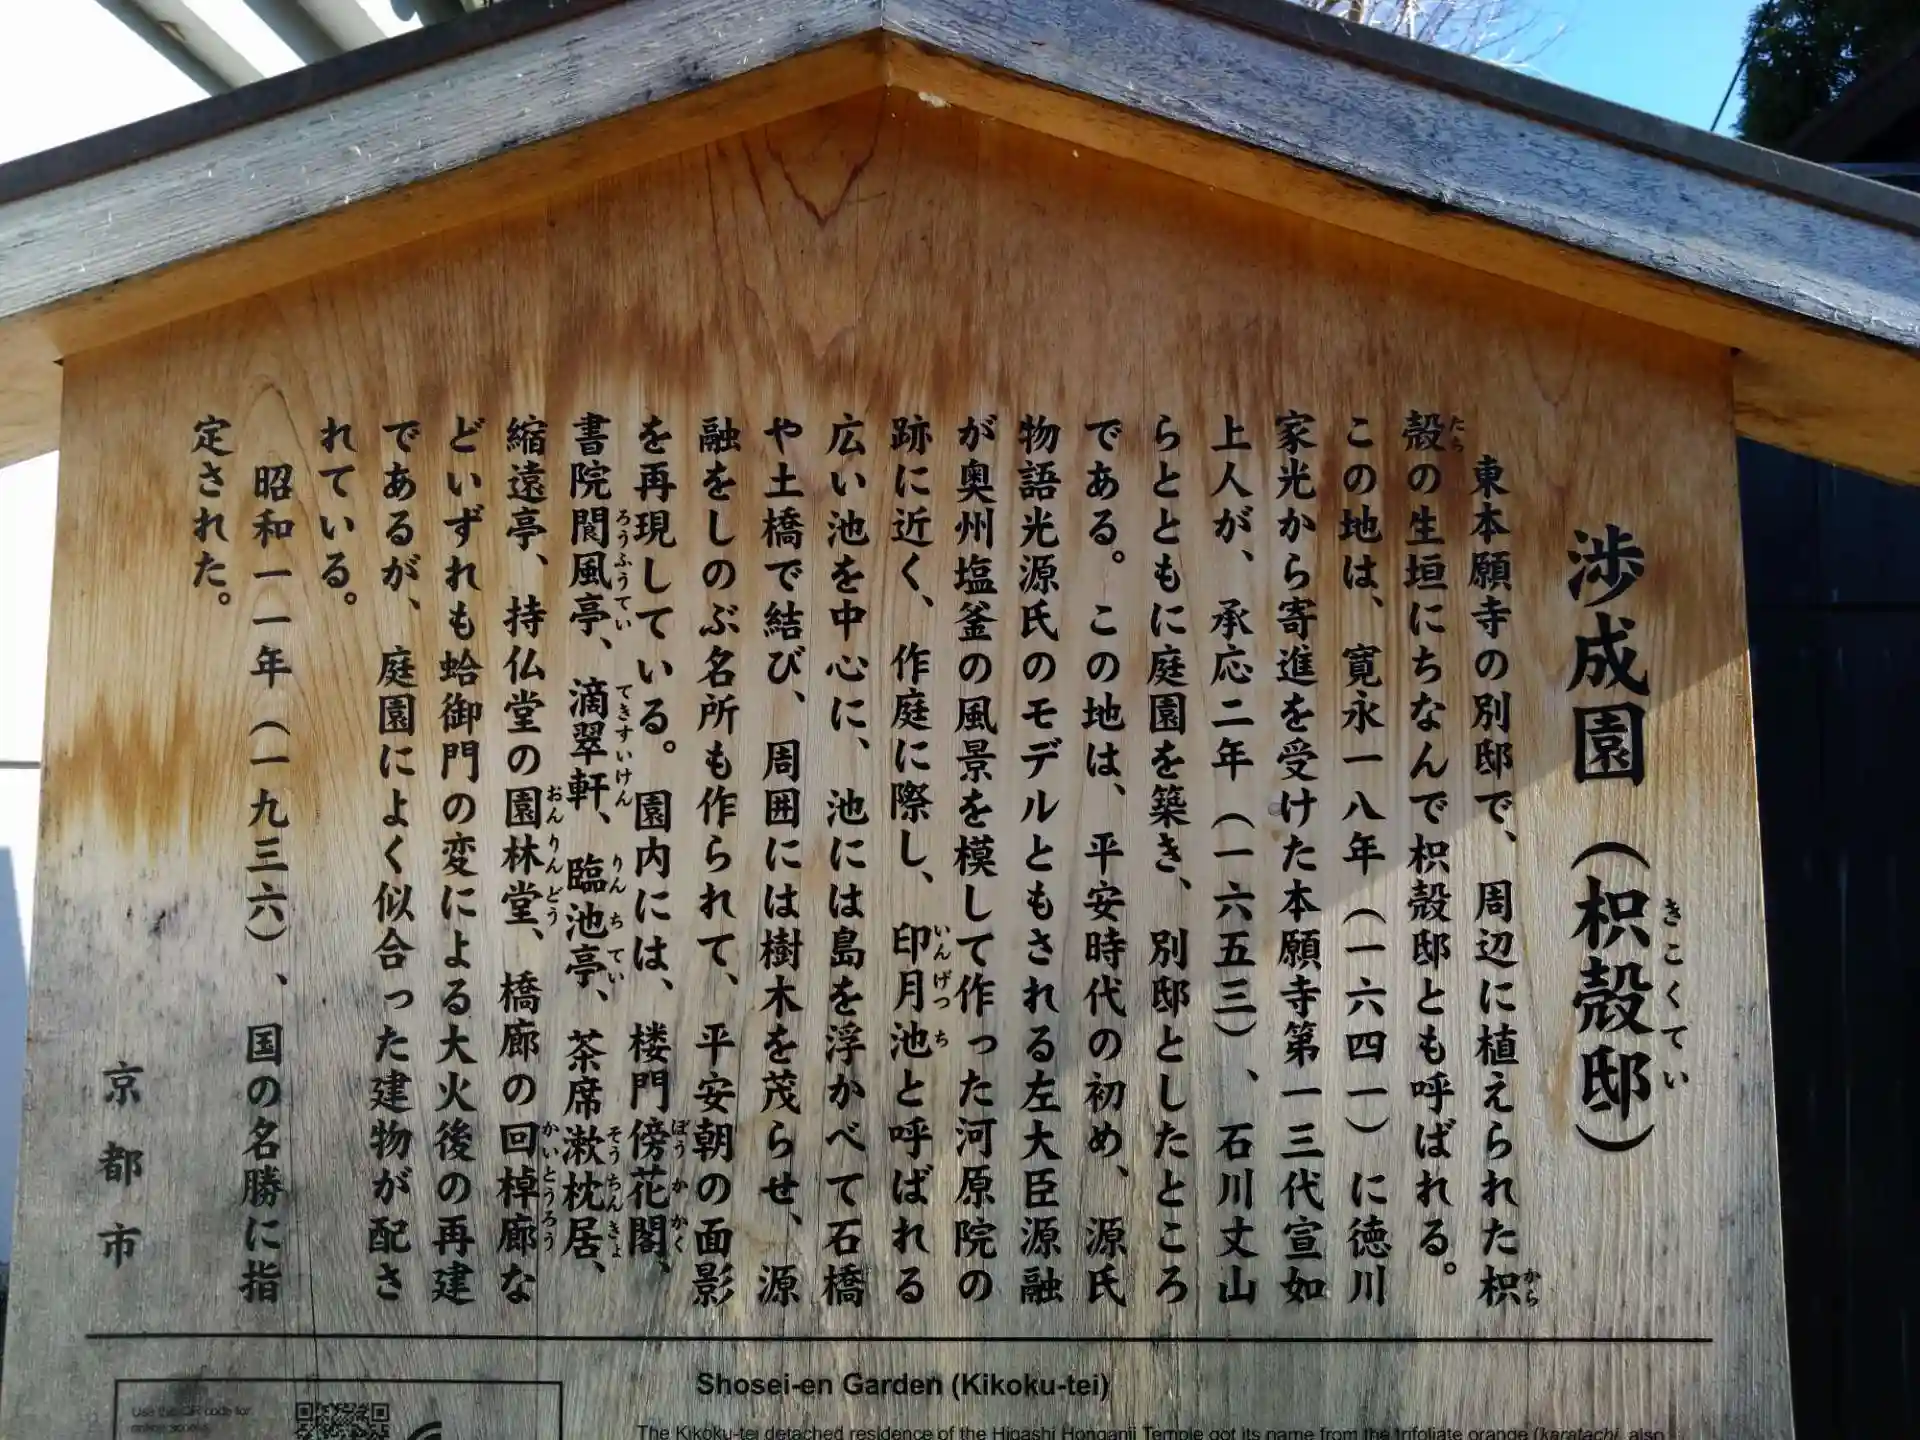 渉成園（枳殻邸）
きこくてい
東本願寺の別邸で、周辺に植えられた枳
から
殻の生垣にちなんで枳殻邸とも呼ばれる。
たち
この地は、寛永一八年（一六四一）に徳川
家光から寄進を受けた本願寺第一三代宣如
上人が、承応二年（一六五三）、石川丈山
らとともに庭園を築き、別邸としたところ
である。この地は、平安時代の初め、源氏
物語光源氏のモデルともされる左大臣源融
が奥州塩釜の風景を模して作った河原院の
跡に近く、作庭に際し、印月池と呼ばれる
いんげつち
広い池を中心に、池には島を浮かべて石橋
や土橋で結び、周囲には樹木を茂らせ、源
融をしのぶ名所も作られて、平安朝の面影
を再現している。園内には、楼門傍花閣、
ぼうかかく
書院閬風亭、滴翠軒、臨池亭、茶席漱枕居、
ろうふうてい てきすいけん りんちてい そうちんきょ
縮遠亭、持仏堂の園林堂、橋廊の回棹廊な
おんりんどう かいとうろう
どいずれも蛤御門の変による大火後の再建
であるが、庭園によく似合った建物が配さ
れている。
昭和一一年（一九三六）、国の名勝に指
定された。
京都市
Shosei-en Garden (Kikoku-tei)
Use this QR code for
online access.
The Kikoku-tei detached residence of the Higashi Honganji Temple got its name from the trifoliate orange (karatachi, also